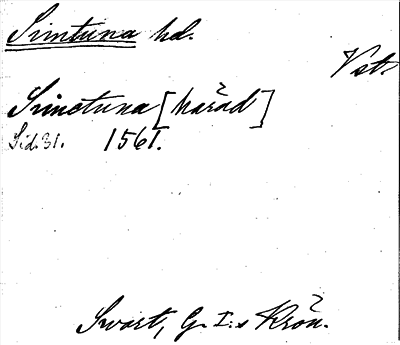 Simtuna hd.
Vstm.
Simetuna [härad]
Sid. 31. 1561.
Swart, G. I:s Krön.